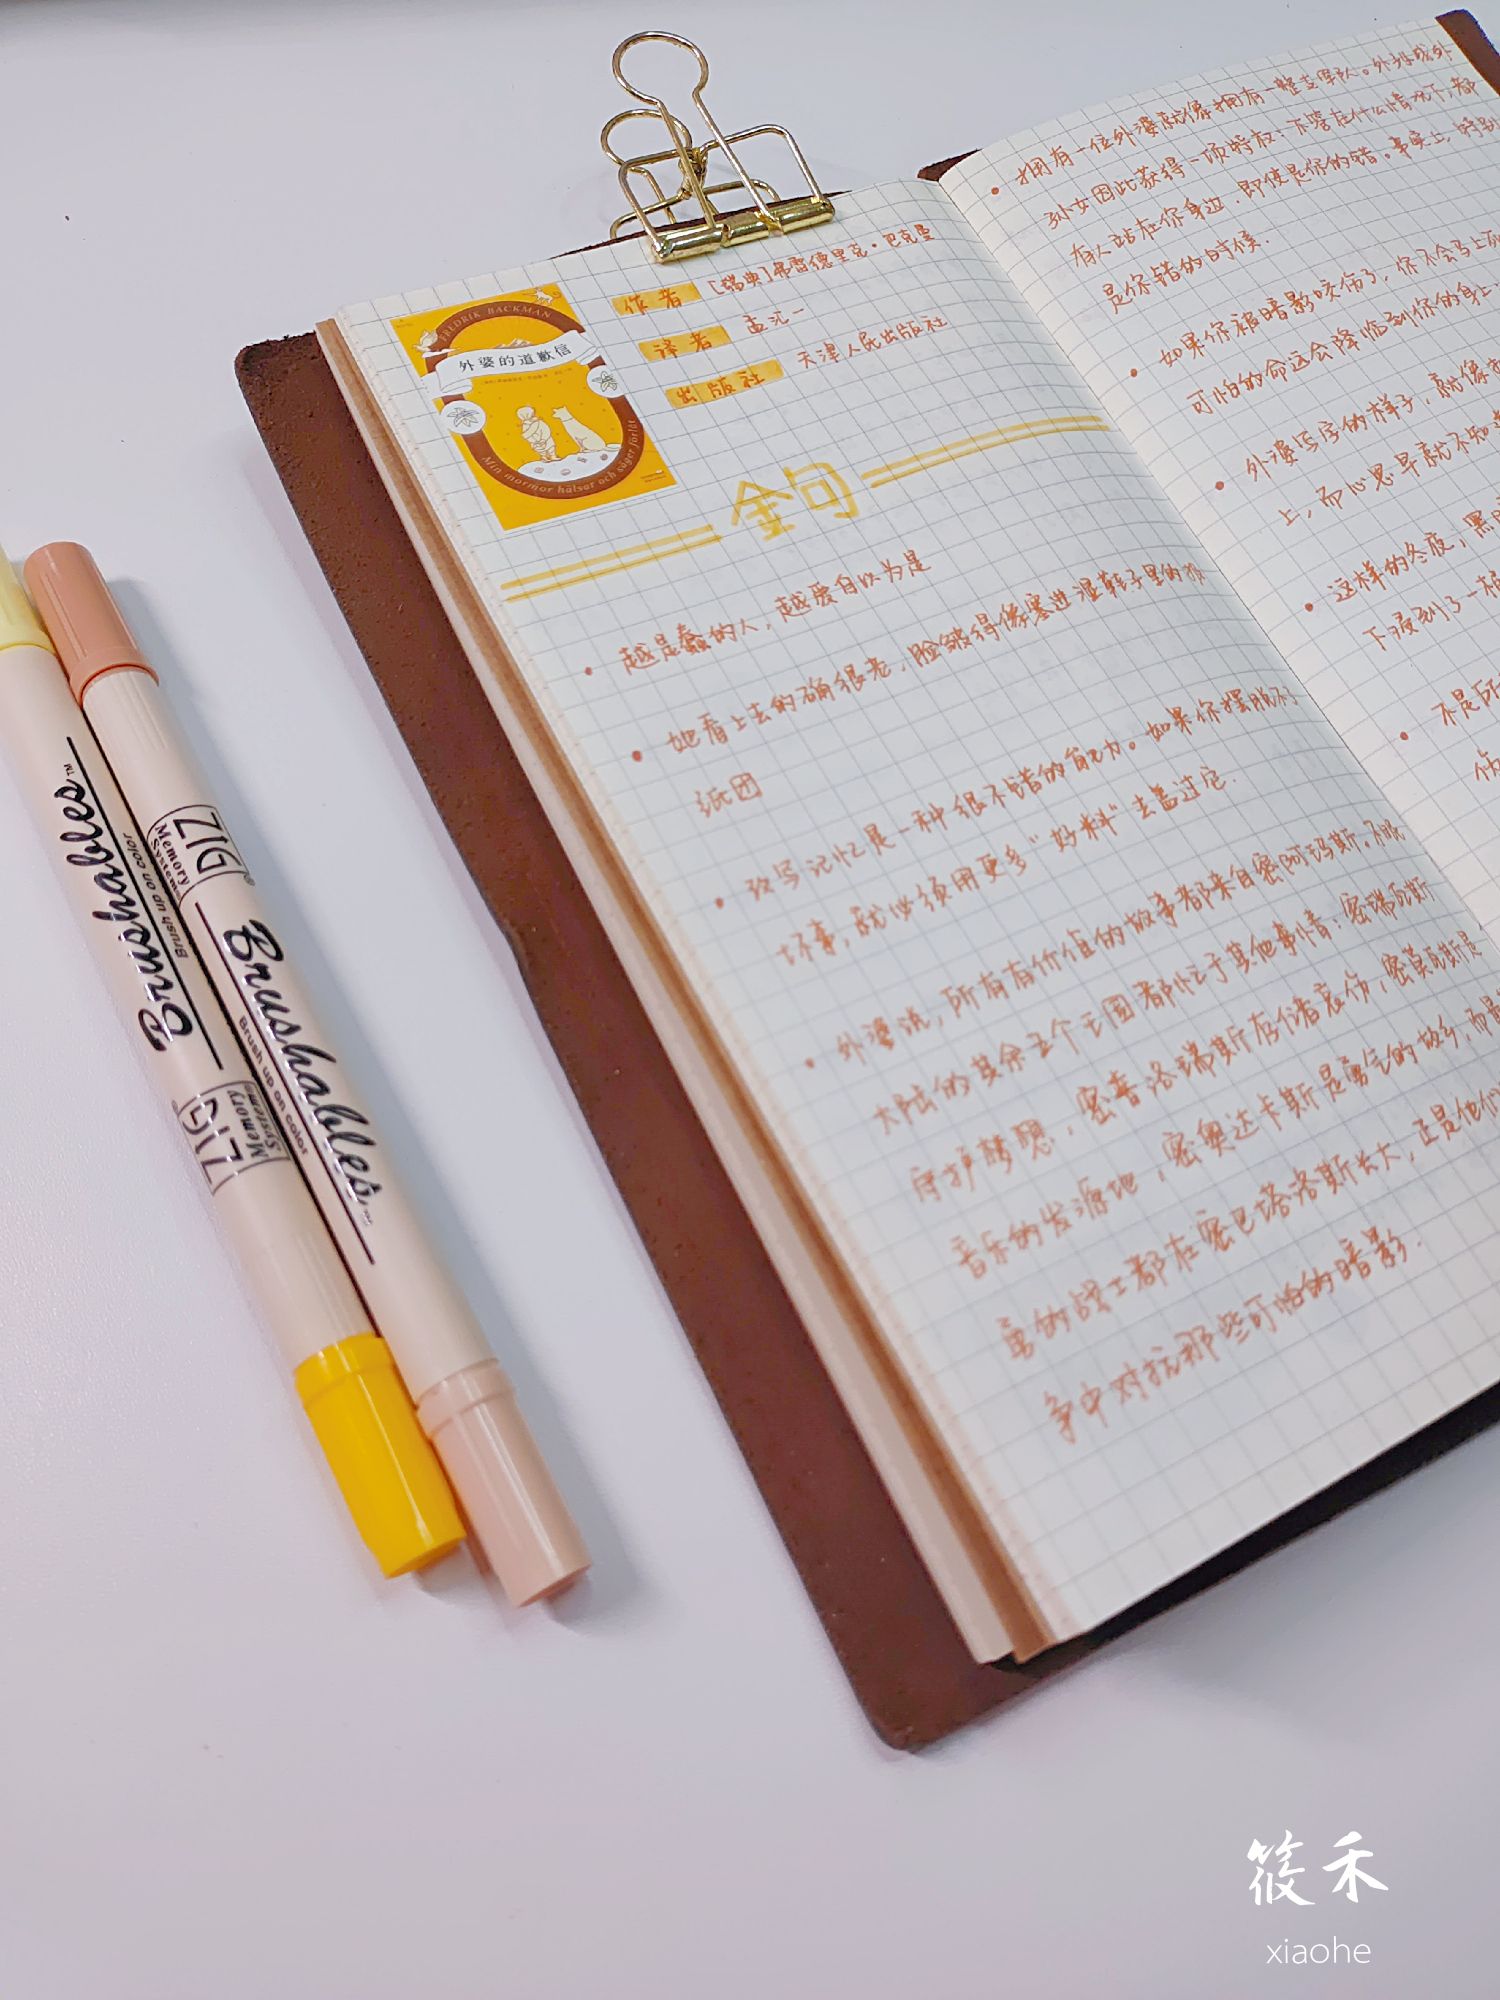 FREDRIK BACKMAN
外婆的道歉信
Min mormor hälsar och säger förlåt
作者 [瑞典]弗雷德里克·巴克曼
译者 孟汇一
出版社 天津人民出版社
金句
• 越是蠢的人，越爱自以为是
• 她看上去的确很老，脸皱得像塞进湿鞋子里的报
纸团
• 改写记忆是一种很不错的能力。如果你摆脱不
坏事，就必须用更多“好料”去盖过它.
• 外婆说，所有有价值的故事都来自密阿玛斯。不眠
大陆的其余五个王国都忙于其他事情：密瑞瓦斯
守护梦想，密普洛瑞斯存储哀伤，密莫瓦斯是
音乐的发源地，密奥达卡斯是勇气的故乡，而最
勇的战士都在密巴塔洛斯长大，正是他们
争中对抗那些可怕的暗影.
• 拥有一位外婆就像拥有一整支军队。外孙或外
孙女因此获得一项特权：不管在什么情况下，都
有人站在你身边，即使是你的错。事实上，特别
是你错的时候.
• 如果你被暗影咬伤了，你不会马上死
可怕的命运会降临到你的身上
• 外婆写字的样子，就像
上，而心思早就不知道
• 这样的冬夜，黑
下滚到了一
• 不是所
伤
Brushables™
Brush up on color
ZIG
Memory System
Brushables™
Brush up on color
ZIG®
Memory System
筱禾
xiaohe